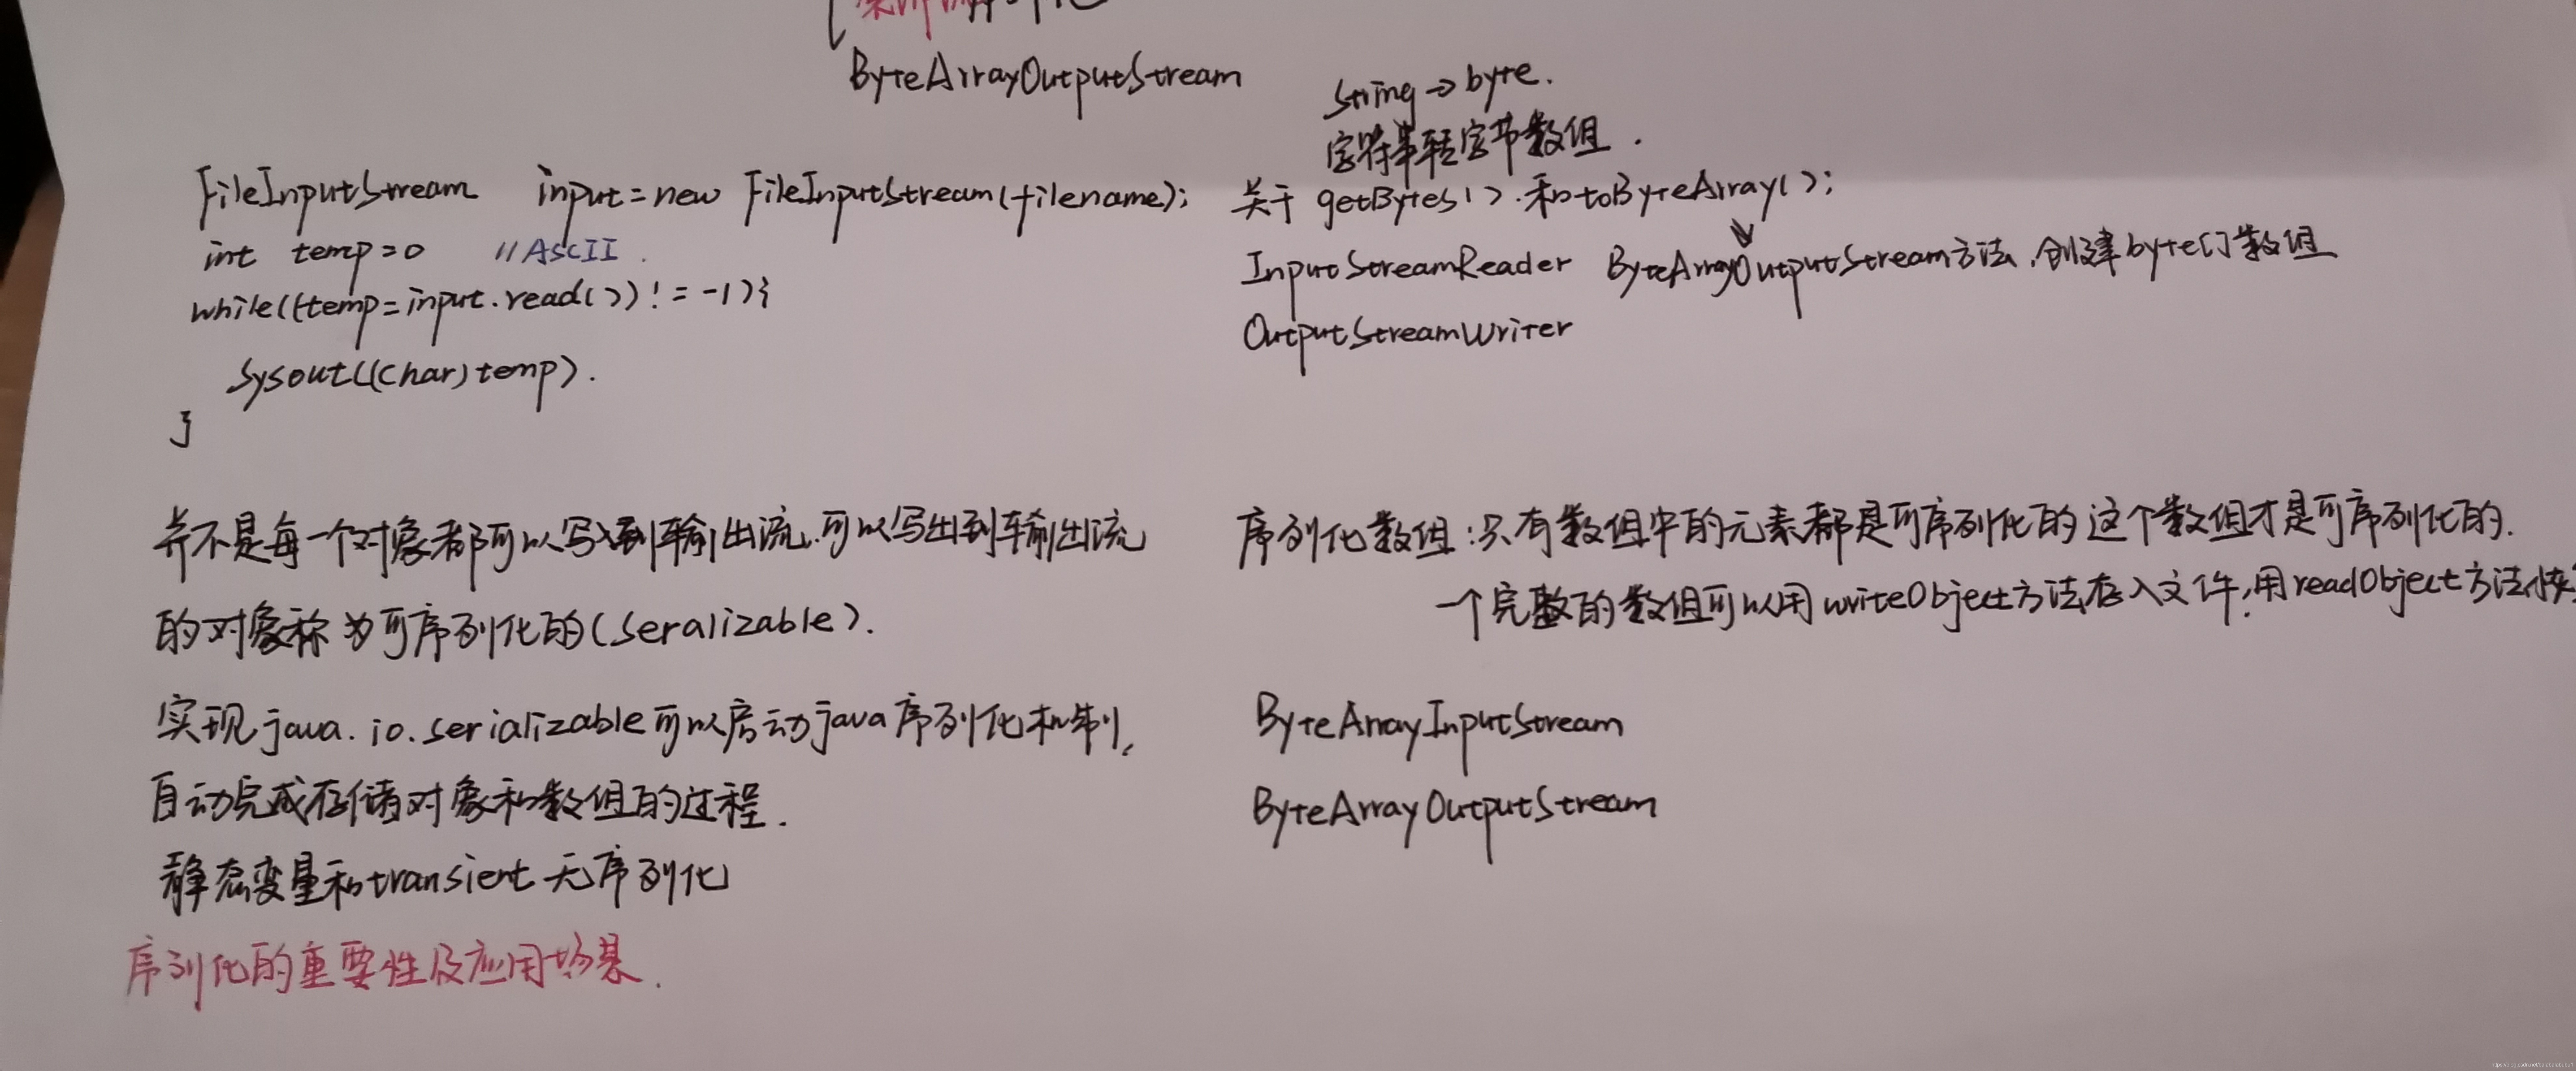 ByteArrayOutputStream
String → byte.
字符串转字节数组.
FileInputStream input=new FileInputStream(filename);
int temp=0 //AscII.
while((temp=input.read())!=-1){
Sysout((char)temp).
}
关于 getBytes().和toByteArray();
InputStreamReader ByteArrayOutputStream方法,创建byte[]数组
OutputStreamWriter
并不是每一个对象都可以写到输出流.可以写出到输出流
的对象称为可序列化的(seralizable).
实现java.io.serializable可以启动java序列化机制,
自动完成存储对象和数组的过程.
静态变量和transient无序列化
序列化的重要性及应用场景.
序列化数组:只有数组中的元素都是可序列化的这个数组才是可序列化的.
一个完整的数组可以用writeObject方法存入文件,用readObject方法恢
ByteArrayInputStream
ByteArrayOutputStream